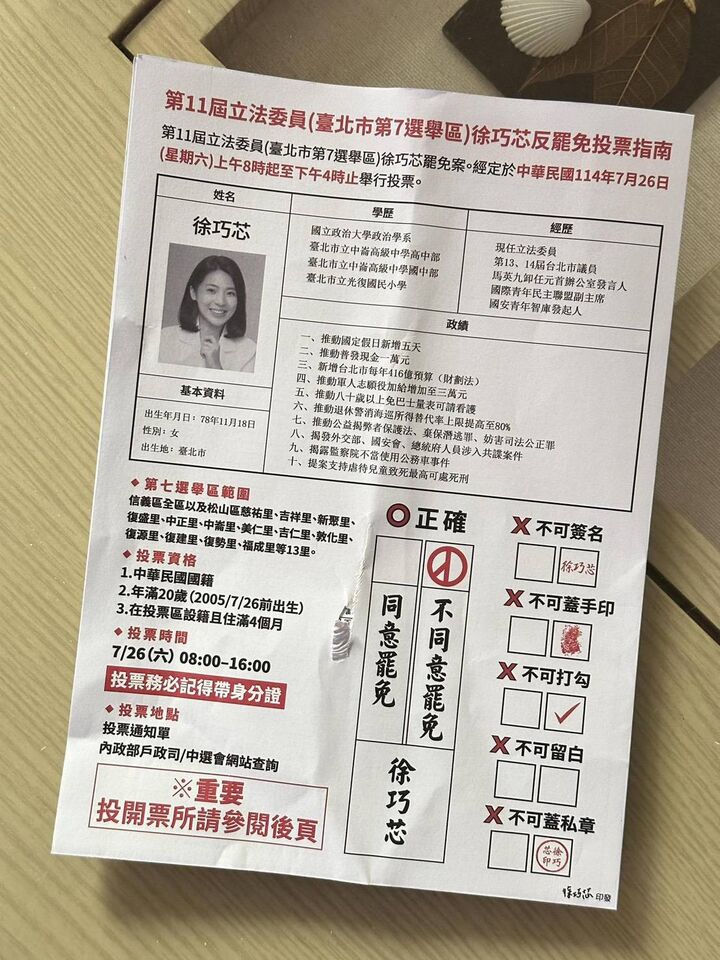 第11屆立法委員(臺北市第7選舉區)徐巧芯反罷免投票指南
第11屆立法委員(臺北市第7選舉區)徐巧芯罷免案。經定於中華民國114年7月26日
(星期六)上午8時起至下午4時止舉行投票。
姓名
徐巧芯
學歷
國立政治大學政治學系
臺北市立中崙高級中學高中部
臺北市立中崙高級中學國中部
臺北市立光復國民小學
經歷
現任立法委員
第13、14屆台北市議員
馬英九卸任元首辦公室發言人
國際青年民主聯盟副主席
國安青年智庫發起人
政績
一、推動國定假日新增五天
二、推動普發現金一萬元
三、新增台北市每年416億預算（財劃法）
四、推動軍人志願役加給增加至三萬元
五、推動八十歲以上免巴士量表可請看護
六、推動退休警消海巡所得替代率上限提高至80%
七、推動公益揭弊者保護法、棄保潛逃罪、妨害司法公正罪
八、揭發外交部、國安會、總統府人員涉入共諜案件
九、揭露監察院不當使用公務車事件
十、提案支持虐待兒童致死最高可處死刑
基本資料
出生年月日：78年11月18日
性別：女
出生地：臺北市
◆ 第七選舉區範圍
信義區全區以及松山區慈祐里、吉祥里、新聚里、
復盛里、中正里、中崙里、美仁里、吉仁里、敦化里、
復源里、復建里、復勢里、福成里等13里。
◆ 投票資格
1.中華民國國籍
2.年滿20歲（2005/7/26前出生）
3.在投票區設籍且住滿4個月
◆ 投票時間
7/26（六）08:00–16:00
投票務必記得帶身分證
◆ 投票地點
投票通知單
內政部戶政司/中選會網站查詢
※重要
投開票所請參閱後頁
O 正確
同意罷免
不同意罷免
徐巧芯
X 不可簽名
徐巧芯
X 不可蓋手印
X 不可打勾
X 不可留白
X 不可蓋私章
徐巧芯印
徐巧芯 印發